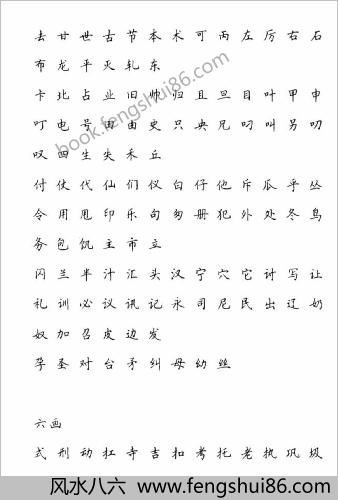 去 甘 世 古 节 本 术 可 丙 左 厉 右 石
布 龙 平 灭 轧 东
卡 北 占 业 旧 帅 归 且 旦 目 叶 甲 申
叮 电 号 田 由 史 只 央 兄 叼 叫 另 叨
叹 四 生 失 禾 丘
付 仗 代 仙 们 仪 白 仔 他 斥 瓜 乎 丛
令 用 甩 印 乐 句 匆 册 犯 外 处 冬 鸟
务 包 饥 主 市 立
闪 兰 半 汁 汇 头 汉 宁 穴 它 讨 写 让
礼 训 必 议 讯 记 永 司 尼 民 出 辽 奶
奴 加 召 皮 边 发
孕 圣 对 台 矛 纠 母 幼 丝
六画
式 刑 动 扛 寺 吉 扣 考 托 老 执 巩 圾
book.fengshui86.com
风水八六 www.fengshui86.com